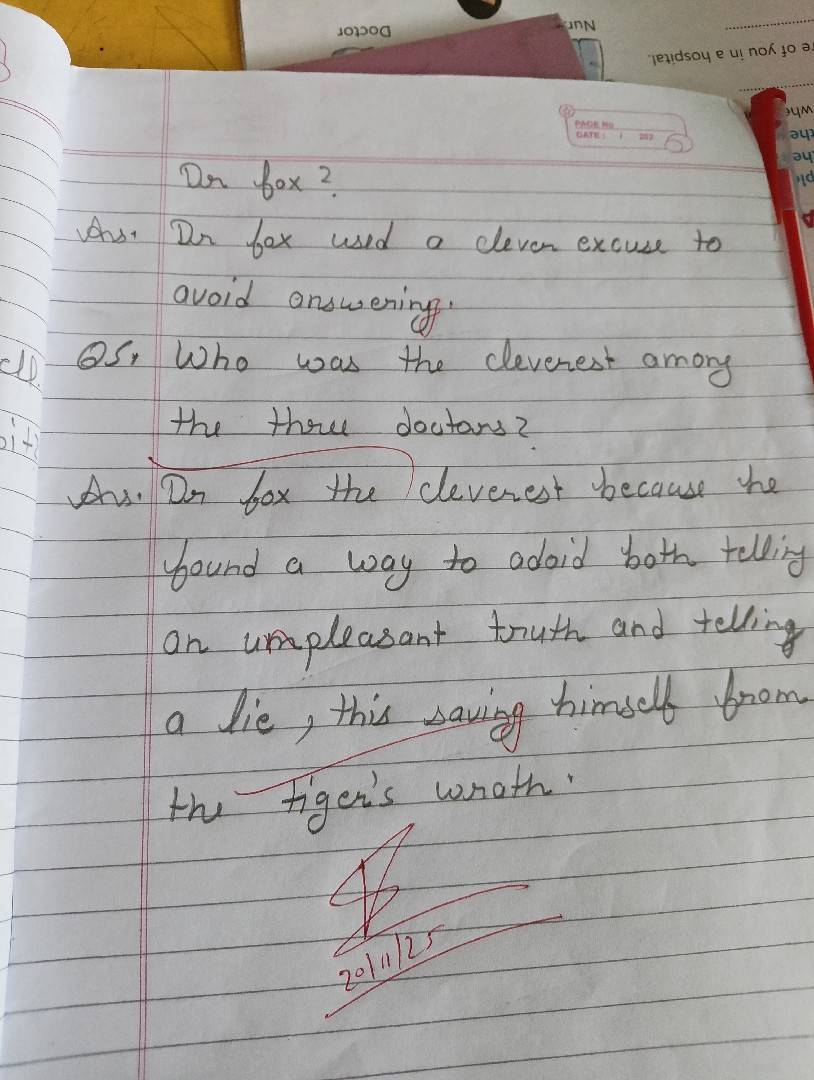 Doctor
Nur
re of you in a hospital.
whe
the
PAGE No
DATE: / 202
Dr fox?
Ans. Dr fox used a clever excuse to
avoid answering.
Q5. Who was the cleverest among
the three doctors?
Ans. Dr fox the cleverest because he
found a way to adoid both telling
an umpleasant truth and telling
a lie, this saving himself from
the tiger's wrath.
20/11/25